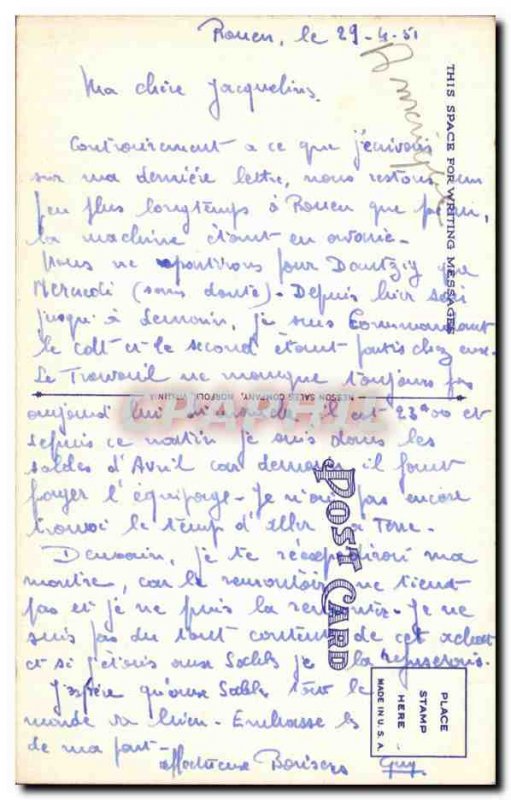 Rouen, le 29-4-51
Ma chère Jacqueline.
Contrairement a ce que j'écrivais
sur ma dernière lettre, nous restons un
peu plus longtemps à Rouen que prévu,
la machine étant en avarie-
Nous ne partirons pour Dantzig que
Mercredi (sans doute)- Depuis hier soir
jusqu'à demain, je suis Commandant
le cdt et le second étant partis chez eux-
Le Travail ne manque toujours pas
aujourd'hui dimanche il est 23h00 et
depuis ce matin je suis dans les
soldes d'Avril car demain il faut
payer l'équipage- Je n'ai pas encore
trouvé le temps d'aller à Terre-
Demain, je te réexpédierai ma
montre, car le remontoir ne tient
pas et je ne puis la remonter- Je ne
suis pas du tout content de cet achat
et si j'étais aux Sables je la refuserais.
J'espère qu'aux Sables tout le
monde va bien- Embrasse les
de ma part-
Affectueux Baisers Guy
THIS SPACE FOR WRITING MESSAGES
NESSON SALES COMPANY, NORFOLK, VIRGINIA
POST CARD
PLACE
STAMP
HERE
MADE IN U.S.A.